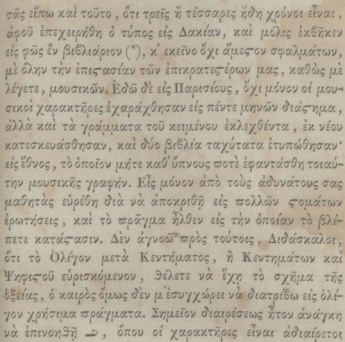 σᾶς εἴπω καὶ τοῦτο, ὅτι τρεῖς ἢ τέσσαρες ἤδη χρόνοι εἶναι,
ἀφοῦ ἐπεχειρήθη ὁ τύπος εἰς Δακίαν, καὶ μόλις ἐκβῆκεν
εἰς φῶς ἓν βιβλιάριον (*), κ' ἐκεῖνο ὄχι ἄμεστον σφαλμάτων,
μὲ ὅλην τὴν ἐπιστασίαν τῶν ἐπικρατεστέρων μας, καθὼς μὲ
λέγετε, μουσικῶν. Ἐδῶ δὲ εἰς Παρισίους, ὄχι μόνον οἱ μου-
σικοὶ χαρακτῆρες ἐχαράχθησαν εἰς πέντε μηνῶν διάστημα,
ἀλλὰ καὶ τὰ γράμματα τοῦ κειμένου ἐκλεχθέντα, ἐκ νέου
κατεσκευάσθησαν, καὶ δύο βιβλία ταχύτατα ἐτυπώθησαν
εἰς ἔθνος, τὸ ὁποῖον μήτε καθ' ὕπνους ποτὲ ἐφαντάσθη τοιαύ-
την μουσικῆς γραφήν. Εἷς μόνον ἀπὸ τοὺς ἀδυνάτους σας
μαθητὰς εὑρέθη διὰ νὰ ἀποκριθῇ εἰς πολλῶν στομάτων
ἐρωτήσεις, καὶ τὸ πρᾶγμα ἦλθεν εἰς τὴν ὁποίαν τὸ βλέ-
πετε κατάστασιν. Δὲν ἀγνοῶ πρὸς τούτοις Διδάσκαλοι,
ὅτι τὸ Ὀλίγον μετὰ Κεντήματος, ἢ Κεντημάτων καὶ
Ψηφιστοῦ εὑρισκόμενον, θέλετε νὰ ἔχῃ τὸ σχῆμα τῆς
ὀξείας, ὁ καιρὸς ὅμως δὲν μ' ἐσυγχώρει νὰ διατρίβω εἰς ὀλί-
γον χρήσιμα πράγματα. Σημεῖον διαιρέσεως ἦτον ἀνάγκη
νὰ ἐπινοηθῇ , ὅπου οἱ χαρακτῆρες εἶναι ἀδιαίρετοι